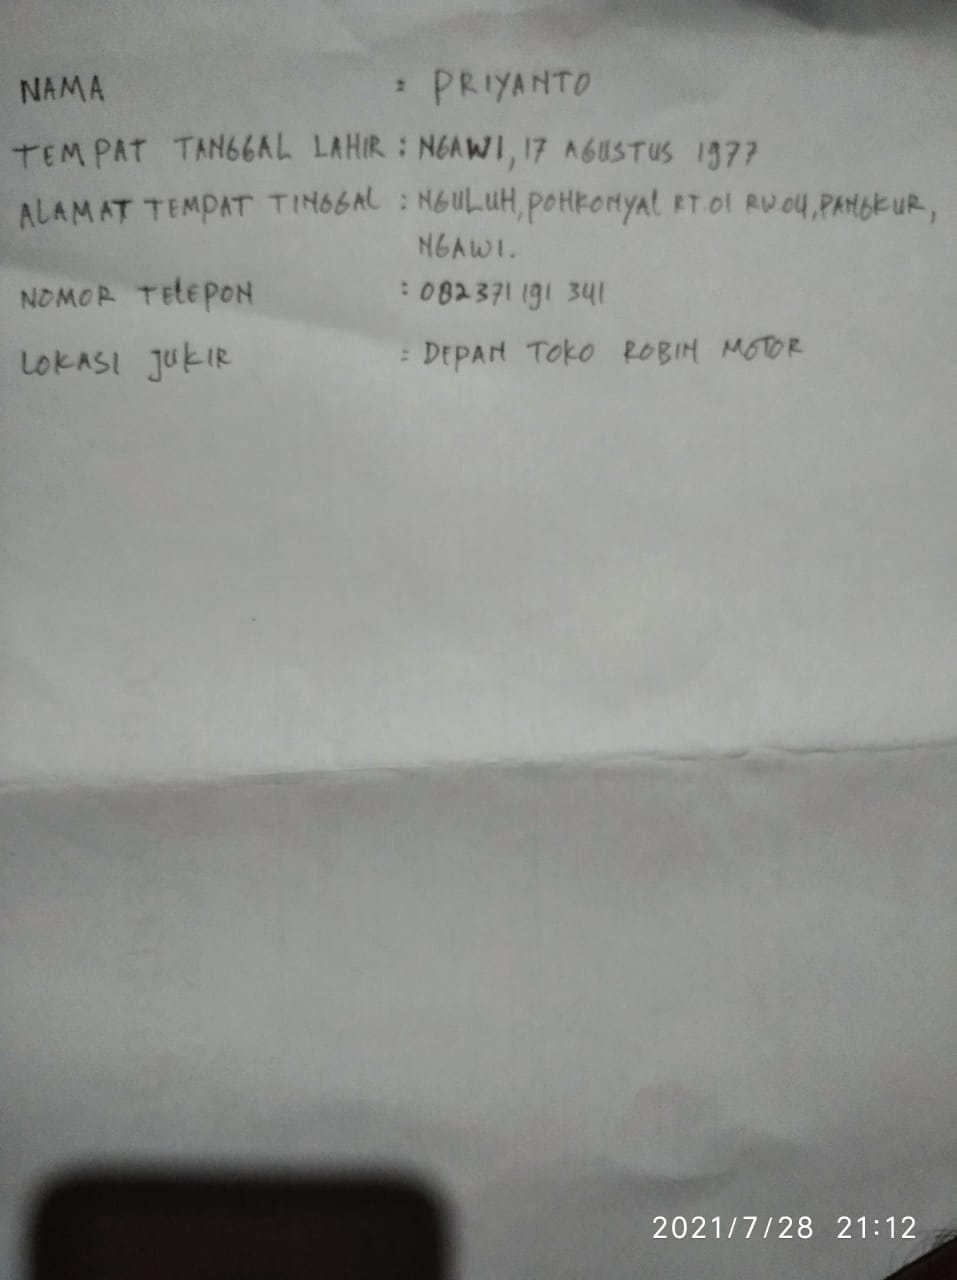 NAMA : PRIYANTO
TEMPAT TANGGAL LAHIR : NGAWI, 17 AGUSTUS 1977
ALAMAT TEMPAT TINGGAL : NGULUH, POHKONYAL RT 01 RW 04, PANGKUR,
NGAWI.
NOMOR TELEPON : 082371 191 341
LOKASI JUKIR : DEPAN TOKO ROBIN MOTOR
2021/7/28 21:12